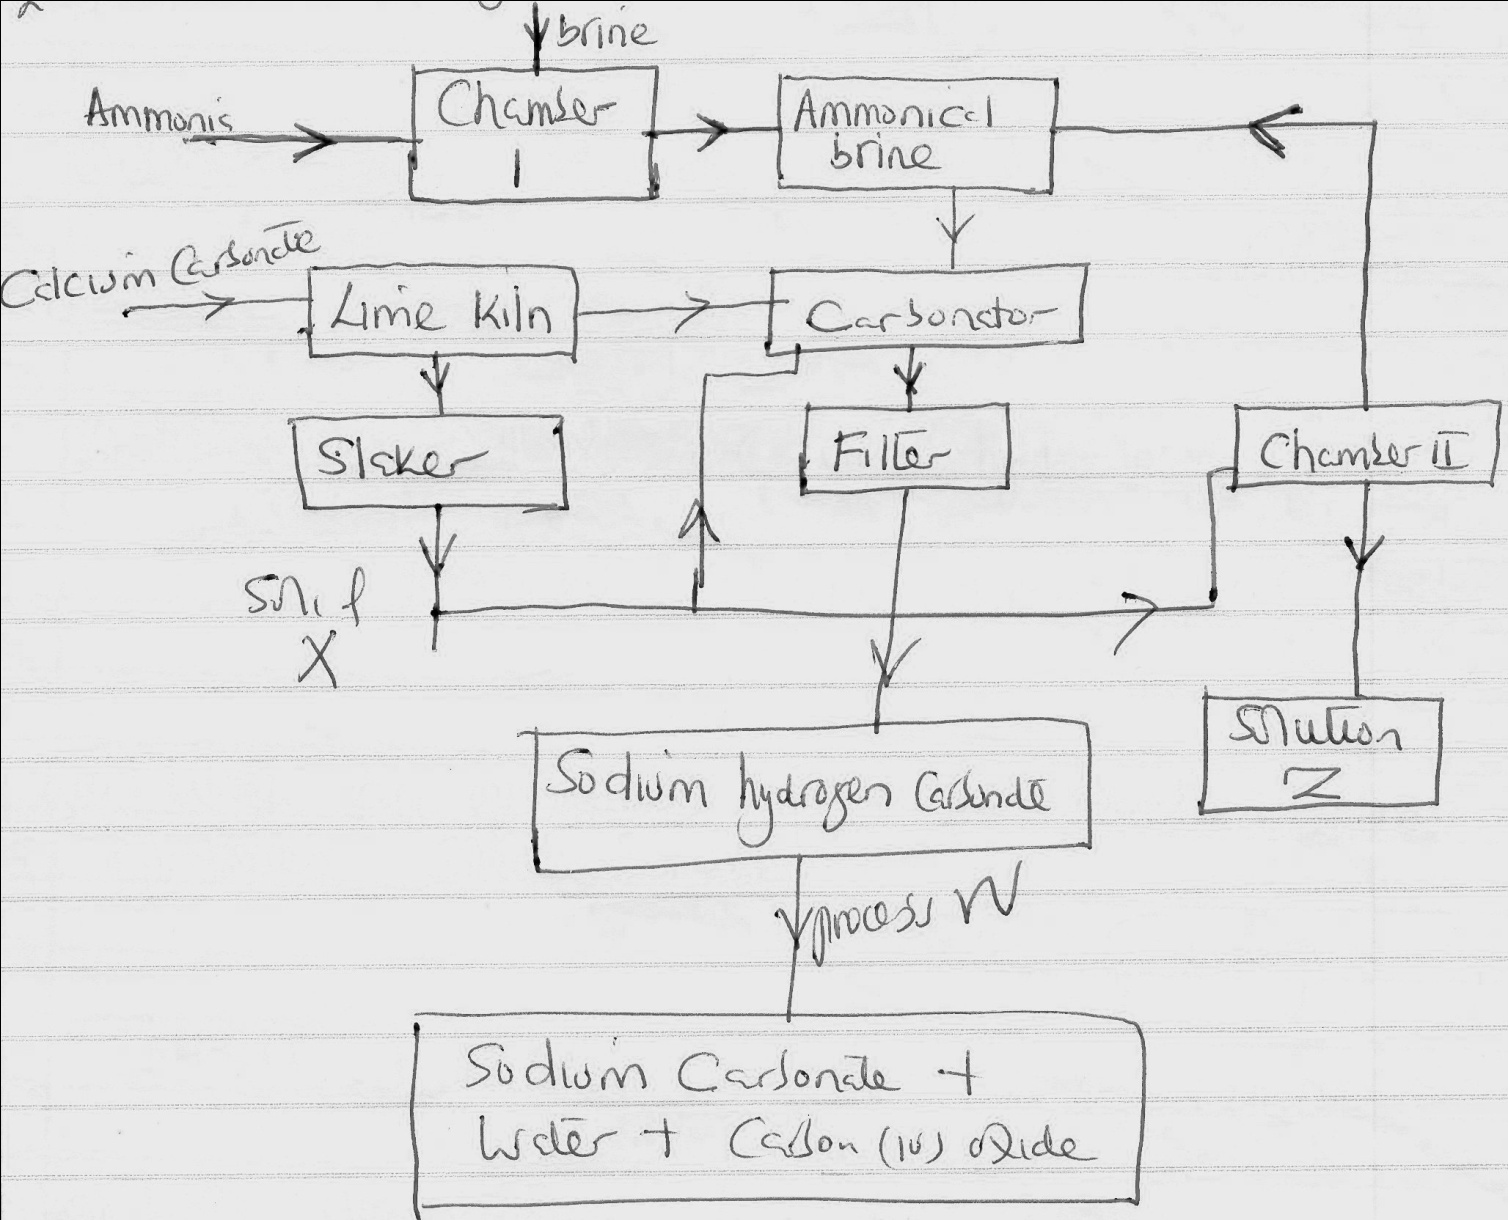 brine
Ammonia
Chamber
I
Ammonical
brine
Calcium Carbonate
Lime Kiln
Carbonator
Slaker
Filter
Chamber II
Solid
X
Solution
Z
Sodium hydrogen Carbonate
process W
Sodium Carbonate +
Water + Carbon (IV) oxide